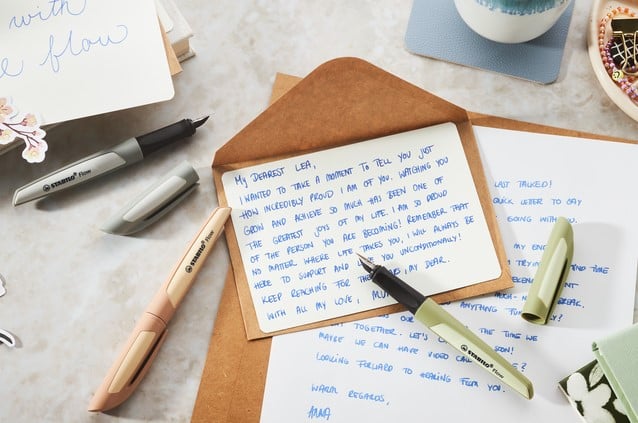 with
flow
STABILO Flow
MY DEAREST LEA,
I WANTED TO TAKE A MOMENT TO TELL YOU JUST
HOW INCREDIBLY PROUD I AM OF YOU. WATCHING YOU
GROW AND ACHIEVE SO MUCH HAS BEEN ONE OF
THE GREATEST JOYS OF MY LIFE. I AM SO PROUD
OF THE PERSON YOU ARE BECOMING! REMEMBER THAT
NO MATTER WHERE LIFE TAKES YOU, I WILL ALWAYS BE
HERE TO SUPPORT AND YOU UNCONDITIONALLY!
KEEP REACHING FOR THE MY DEAR.
WITH ALL MY LOVE,
STABILO Flow
LAST TALKED!
QUICK LETTER TO SAY
GOING WITH YOU.
MY
TIME
BREAK.
ANYTHING
TOGETHER. LET'S THE TIME WE
MAYBE WE CAN HAVE VIDEO CALL SOON!
LOOKING FORWARD TO HEARING FROM YOU.
WARM REGARDS,
ANNA
STABILO Flow